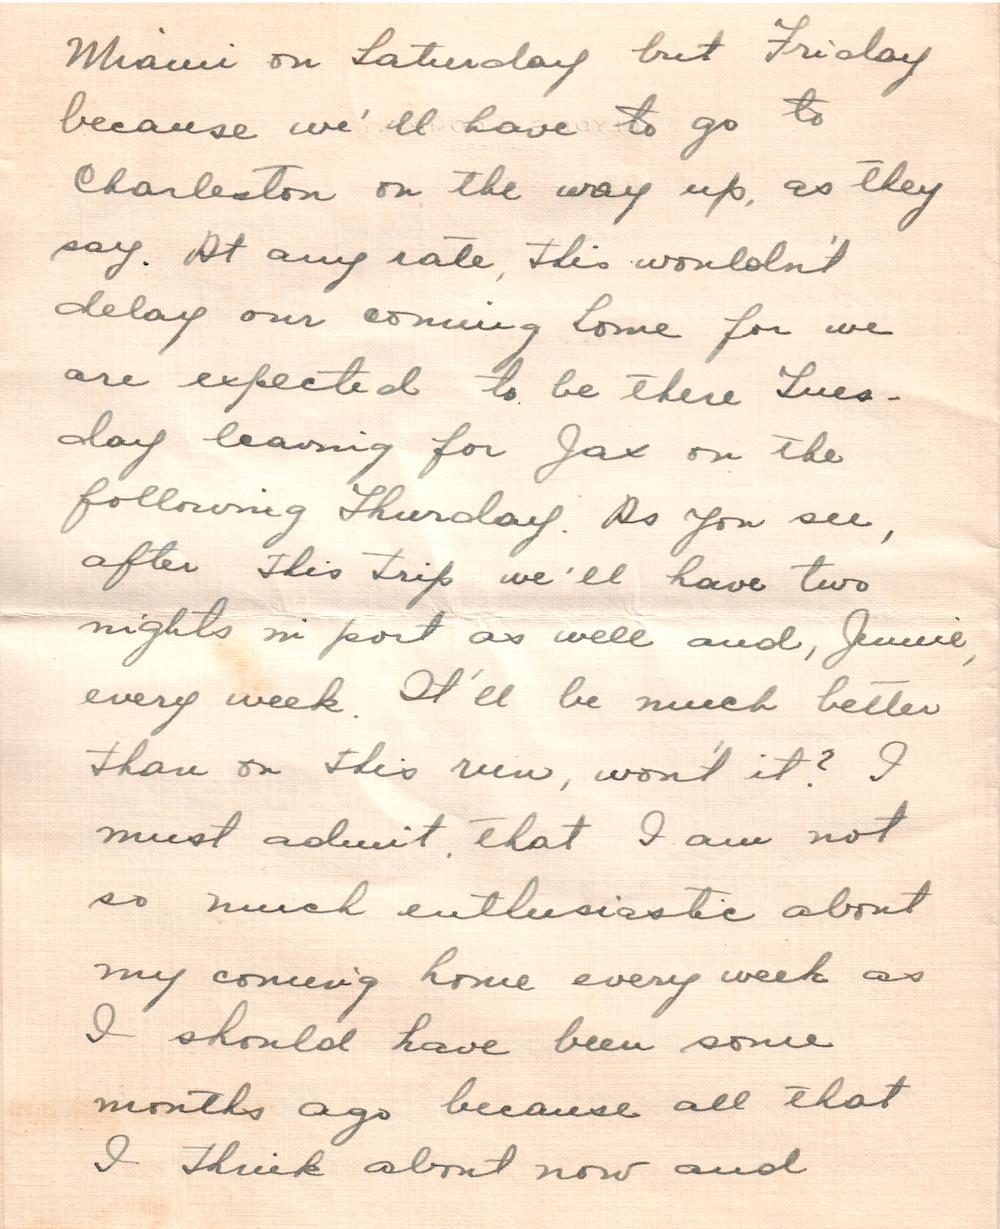 Miami on Saturday but Friday
because we'll have to go to
Charleston on the way up, as they
say. At any rate, this wouldn't
delay our coming home for we
are expected to be there Tues-
day leaving for Jax on the
following Thurday. As you see,
after this trip we'll have two
nights in port as well and, Jennie,
every week. It'll be much better
than on this run, won't it? I
must admit that I am not
so much enthusiastic about
my coming home every week as
I should have been some
months ago because all that
I think about now and